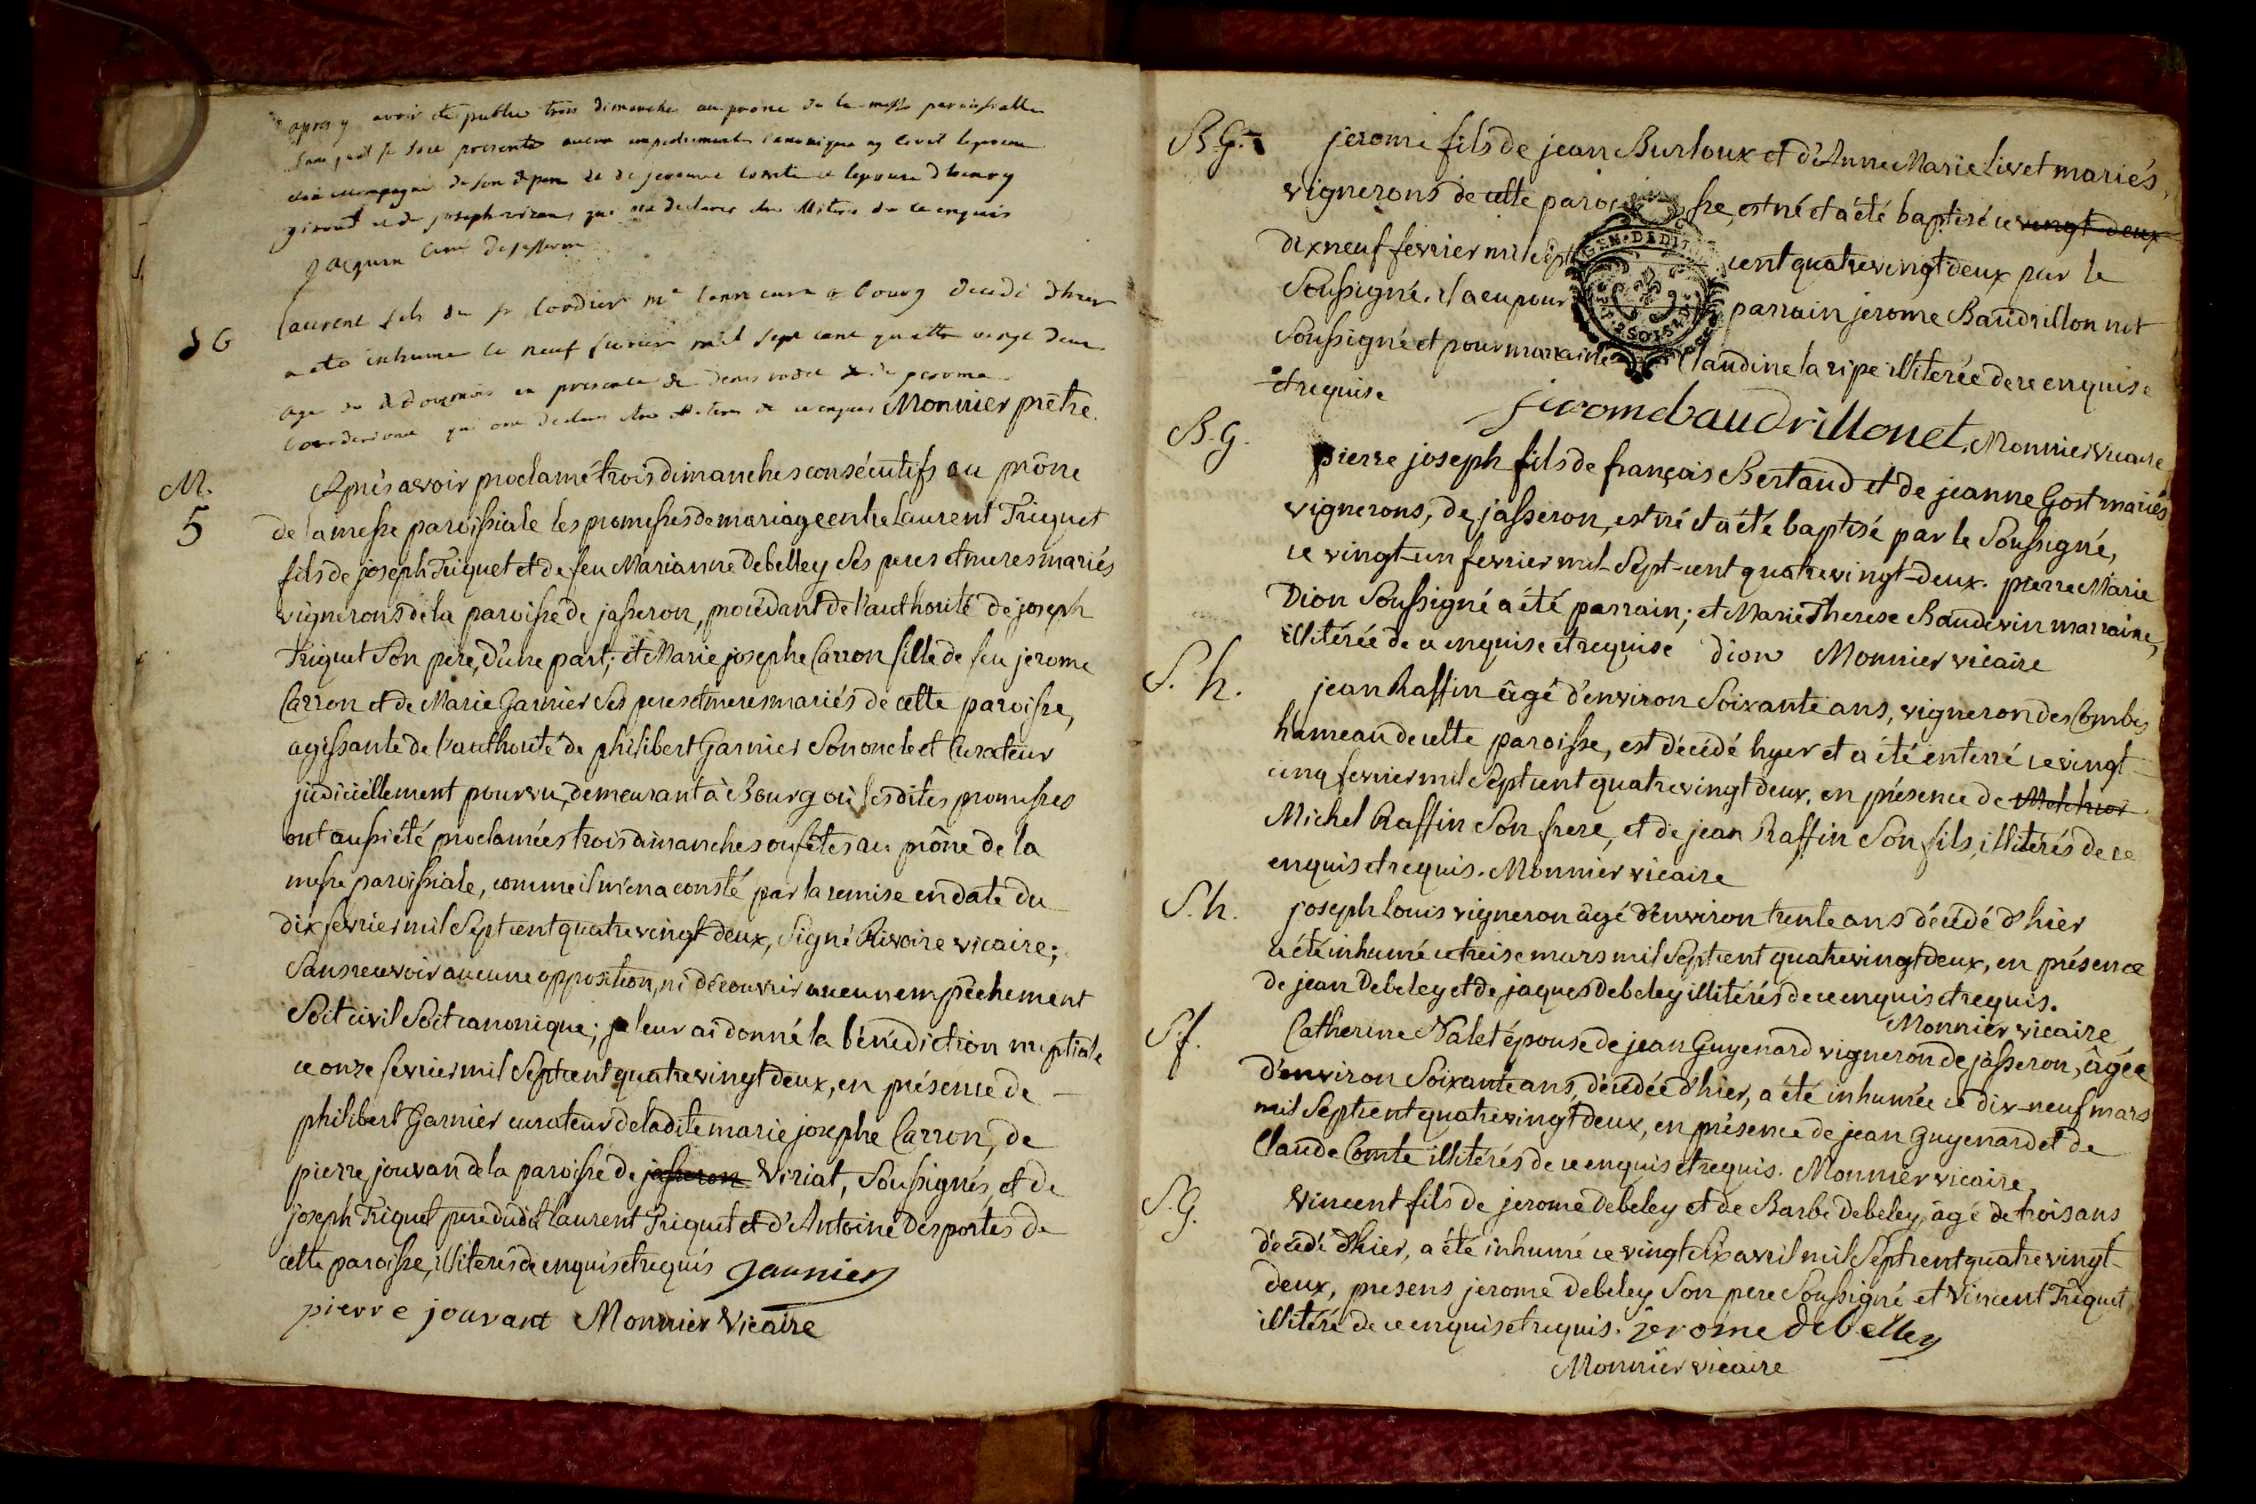 apres y avoir été publié trois dimanche au prone de la messe paroissialle
sans quil se soit presenté aucun empechement canonique ny civil lepoux
été accompagné de son pere et de jerome comte et lepouse d'henry
giroud et de joseph qui ont declarés être illiteres de ce enquis
Jacquin curé de jasseron
S G
Laurent fils du sr Cordier me a bourg decedé dhier
a eté inhumé le neuf fevrier mil sept cent quatre vingt deux
agé de mois en presence de denis et de jerome
qui ont declaré être illiteres de ce enquis Monnier prêtre.
M.
5
Aprés avoir proclamé trois dimanches consécutifs au prône
de la messe paroissiale les promesses de mariage entre Laurent Triquet
fils de joseph Triquet et de feu Marianne Debelley ses peres et meres mariés
vignerons de la paroisse de jasseron, procédant de l'authorité de joseph
Triquet Son pere, d'une part; et Marie josephe Carron fille de feu jerome
Carron et de Marie Garnier ses peres et meres mariés de cette paroisse,
agissante de l'authorité de philibert Garnier Son oncle et Curateur
judiciéllement pourvu, demeurant à Bourg où lesdites promesses
ont aussi été proclamées trois dimanches ou fêtes au prône de la
messe paroissiale, comme il m'en a consté par la remise en date du
dix fevrier mil Sept cent quatre vingt deux, Signé Rivoire vicaire;
Sans recevoir aucune opposition, ni découvrir aucun empêchement
Soit civil Soit canonique; je leur ai donné la bénédiction nuptiale
ce onze fevrier mil Sept cent quatre vingt deux, en présence de
philibert Garnier curateur de ladite marie josephe Carron, de
pierre jouvan de la paroisse de jasseron Viriat, Soussignés, et de
joseph Triquet pere dudit Laurent Triquet et d'Antoine Desportes de
cette paroisse, illiterés de enquis et requis garnier
pierre jouvant Monnier Vicaire
B. G.
jerome fils de jean Burloux et d'Anne Marie Livet mariés,
vignerons de cette paroisse, est né et a été baptisé ce vingt deux
dix neuf fevrier mil sept cent quatre vingt deux par le
Soussigné. il a eu pour parrain jerome Baudrillon net
Soussigné et pour marraine Claudine la ripe illiterée de ce enquise
et requise
GEN. DE DIJ
jeromebaudrillonet. Monnier Vicaire
B. G.
pierre joseph fils de françois Bertaud et de jeanne Gost mariés
vignerons, de jasseron, est né et a été baptisé par le Soussigné,
ce vingt-un fevrier mil-Sept-cent quatre vingt-deux. pierre Marie
Dion Soussigné a été parrain; et Marie Therese Baudevin marraine,
illitérée de ce enquise et requise dion Monnier vicaire
S. h.
jean Raffin âgé d'environ Soixante ans, vigneron des Combes
hameau de cette paroisse, est décédé hyer et a été enterré ce vingt
cinq fevrier mil Sept cent quatre vingt deux, en présence de Melchior
Michel Raffin Son frere, et de jean Raffin Son fils, illitérés de ce
enquis et requis. Monnier vicaire
S. h.
joseph Louis vigneron âgé d'environ trente ans décédé d'hier
a été inhumé ce treise mars mil Sept cent quatre vingt deux, en présence
de jean Debeley et de jaques Debeley illitérés de ce enquis et requis.
Monnier vicaire
S. f.
Catherine Nalet épouse de jean Guyenard vigneron de jasseron, âgée
d'environ Soixante ans, décédée d'hier, a été inhumée ce dix-neuf mars
mil Sept cent quatre vingt deux, en présence de jean Guyenard et de
Claude Comte illitérés de ce enquis et requis. Monnier vicaire
S. G.
Vincent fils de jerome Debeley et de Barbe Debeley, âgé de trois ans
décédé d'hier, a été inhumé ce vingt Six avril mil Sept cent quatre vingt-
deux, presens jerome Debeley Son pere Soussigné et Vincent Triquet
illitéré de ce enquis et requis. jerome debelley
Monnier vicaire